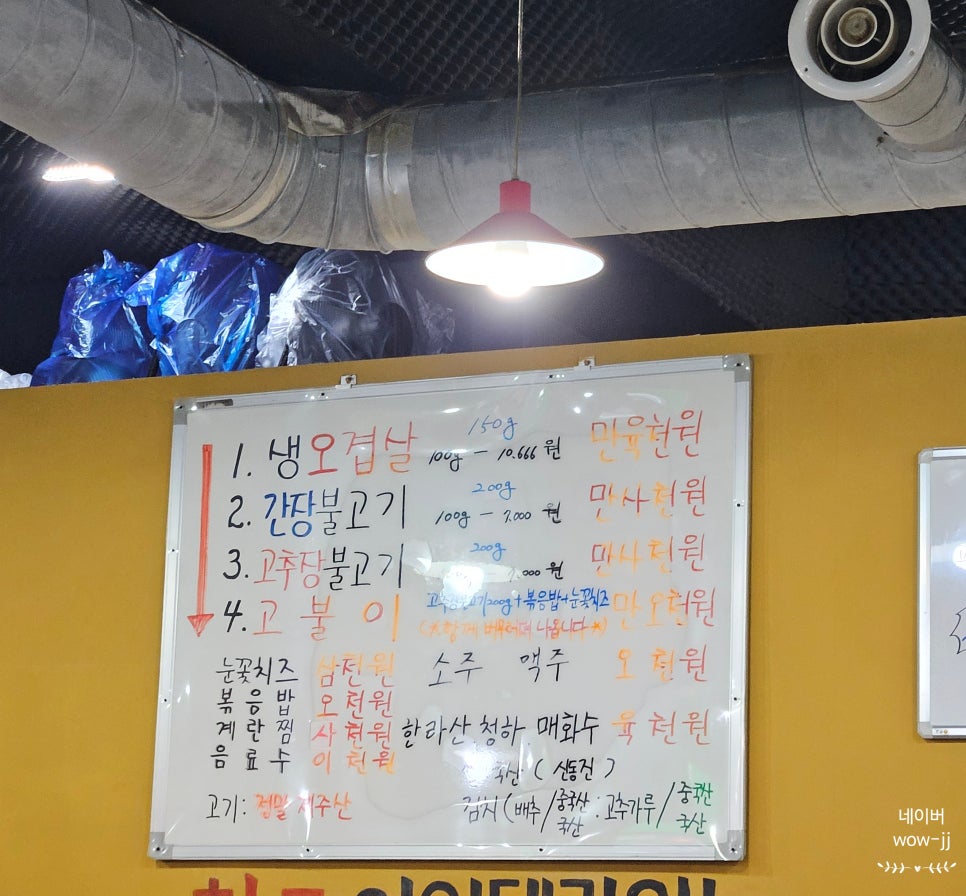 150g
1. 생오겹살 100g - 10.666 원 만육천원
200g
2. 간장불고기 100g - 7.000 원 만사천원
200g
3. 고추장불고기 원 만사천원
4. 고불이 200g+볶음밥+눈꽃치즈 만오천원
나옵니다
눈꽃치즈 삼천원 소주 맥주 오천원
볶음밥 오천원
계란찜 사천원 한라산 청하 매화수 육천원
음료수 이천원
국산 (신동진)
고기: 정말 제주산 김치 (배추/중국산 국산 : 고추가루/중국산 국산
네이버
wow-jj